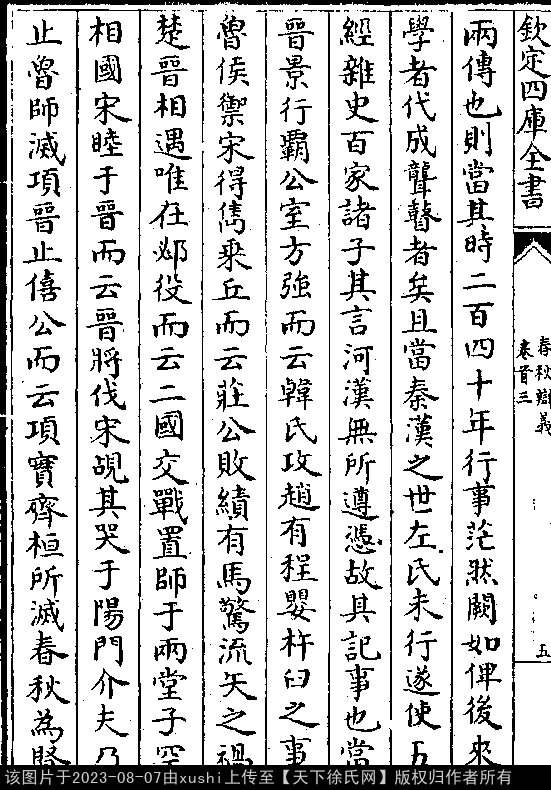 欽定四庫全書
春秋辯義
卷首三
五
兩傳也則當其時二百四十年行事茫然闕如俾後來
學者代成聾瞽者矣且當秦漢之世左氏未行遂使五
經雜史百家諸子其言河漢無所遵憑故其記事也當
晉景行霸公室方強而云韓氏攻趙有程嬰杵臼之事
魯侯禦宋得雋乘丘而云莊公敗績有馬驚流矢之禍
楚晉相遇唯在邲役而云二國交戰置師于兩堂子罕
相國宋睦于晉而云晉將伐宋覘其哭于陽門介夫乃
止魯師滅項晉止僖公而云項實齊桓所滅春秋為賢
该图片于2023-08-07由xushi上传至【天下徐氏网】版权归作者所有